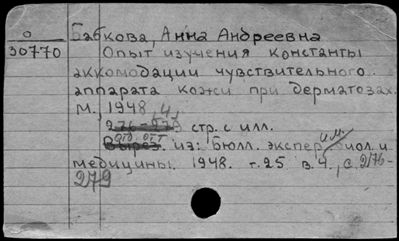 О Бабкова Анна Андреевна
30770 Опыт изучения константы
аккомодации чувствительного
аппарата кожи при дерматозах.
М., 1948. 4 с.
276-279 стр. с илл.
Вырез. отд. отт. из: Бюлл. экспер. биол. и м.
медицины. 1948. т. 25 в. 4., с. 276-
279